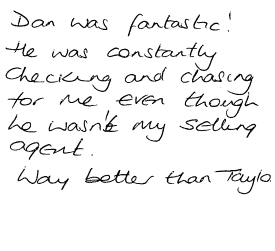 Dan was fantastic!
He was constantly
checking and chasing
for me even though
he wasn't my selling
agent.
Way better than Taylo